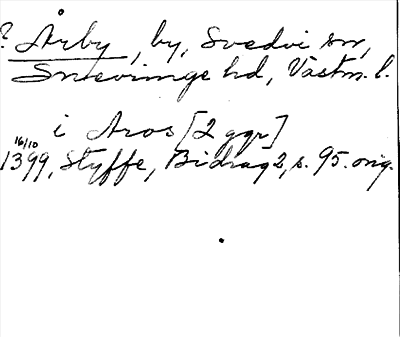 ? Årby, by, Svedvi sn,
Snevringe hd, Västm. l.
i Aros [2 ggr]
16/10
1399, Styffe, Bidrag 2, s. 95. orig.